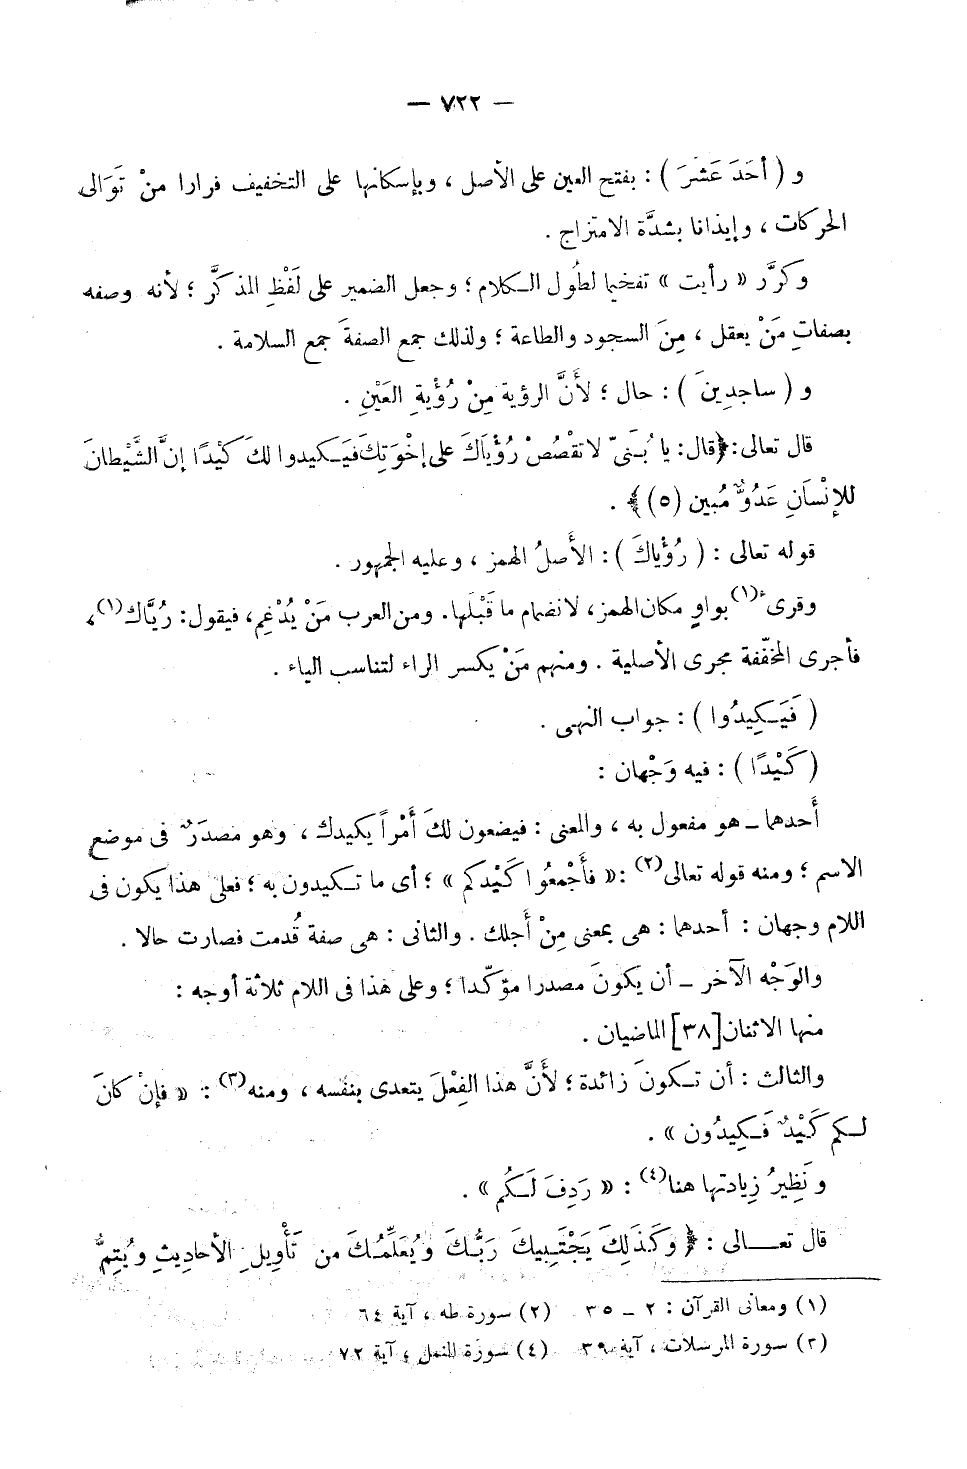 — ٧٢٢ —
و ( أحَدَ عَشَرَ ) : بفتح العين على الأصل ، وبإسكانها على التخفيف فرارا منْ تَوَالى
الحركات ، وإيذانا بشدَّة الامتزاج .
وكرَّر « رأيت » تفخيما لطُول الكلام ؛ وجعل الضمير على لَفْظِ المذكَّر ؛ لأنه وصفه
بصفاتِ مَنْ يعقل ، مِنَ السجود والطاعة ؛ ولذلك جمع الصفةَ جمع السلامة .
و ( ساجدِينَ ) : حال ؛ لأَنَّ الرؤية مِنْ رُؤْيةِ العَيْنِ .
قال تعالى : ﴿قال : يا بُنَىّ لا تقْصُصْ رُؤْيَاكَ على إخْوَتِكَ فيَكيدوا لكَ كَيْدًا إنَّ الشَّيْطانَ
للإنْسَانِ عَدُوٌّ مُبين (٥)﴾ .
قوله تعالى : ( رُؤْياكَ ) : الأَصلُ الهمز ، وعليه الجمهور .
وقرىء(١) بواوٍ مكان الهمز ، لانضمام ما قَبْلَها . ومن العرب مَنْ يُدْغِم ، فيقول : رُيَّاك(١) ،
فأجرى المخفّفة مجرى الأصلية . ومنهم مَنْ يكسر الراء لتناسب الياء .
( فَيَكِيدُوا ) : جواب النهى .
( كَيْدًا ) : فيه وَجْهان :
أَحدهما ــ هو مفعول به ، والمعنى : فيضعون لكَ أَمْراً يكيدك ، وهو مصدَرٌ فى موضع
الاسم ؛ ومنه قوله تعالى(٢) : « فأَجْمعُوا كَيْدكم » ؛ أى ما تكيدون به ؛ فعلى هذا يكون فى
اللام وجهان : أحدهما : هى بمعنى مِنْ أَجلك . والثانى : هى صفة قُدمت فصارت حالا .
والوَجْه الآخر ــ أن يكونَ مصدرا مؤكّدا ؛ وعلى هذا فى اللام ثلاثة أوجه :
منها الاثنان [٣٨] الماضيان .
والثالث : أن تكونَ زائدة ؛ لأَنَّ هذا الفِعْلَ يتعدى بنفْسه ، ومنه(٣) : « فإنْ كانَ
لكم كَيْدٌ فَكِيدُون » .
ونَظِيرُ زِيادتها هنا(٤) : « رَدِفَ لَكُم » .
قال تعالى : ﴿ وكَذَلِكَ يَجْتَبِيكَ رَبُّكَ ويُعَلِّمُكَ من تَأْوِيلِ الأحادِيثِ ويُتِمُّ
(١) ومعانى القرآن : ٢ ــ ٣٥ (٢) سورة طه ، آية ٦٤
(٣) سورة المرسلات ، آية ٣٩ (٤) سورة النمل ، آية ٧٢